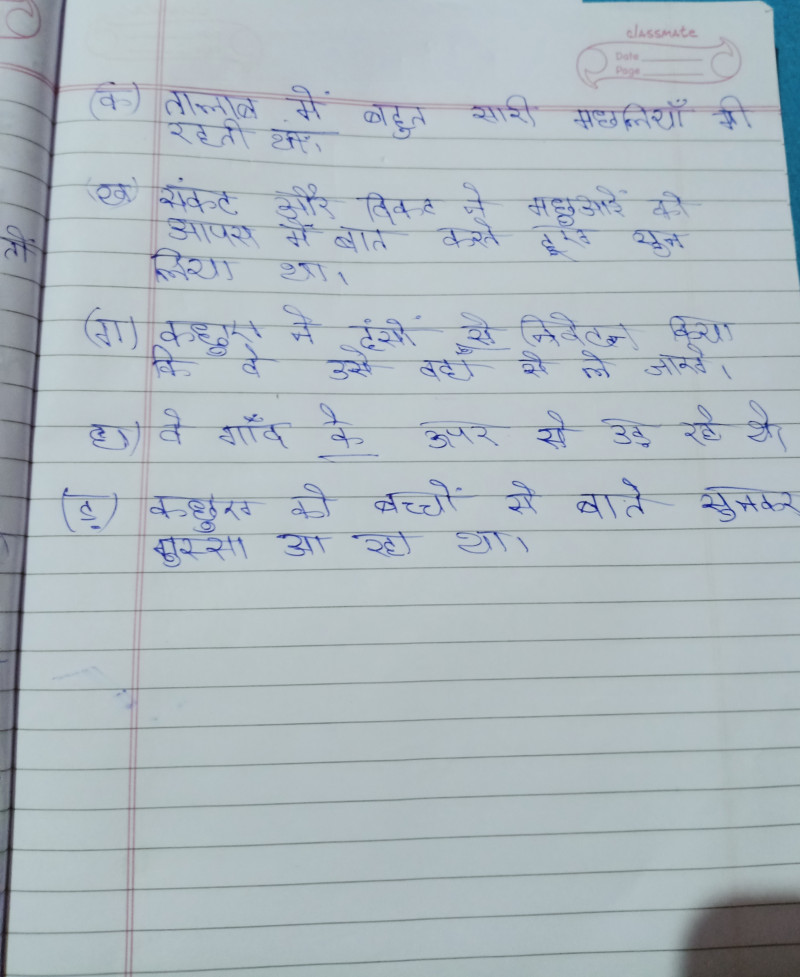 classmate
Date
Page
(क) तालाब में बहुत सारी मछलियाँ भी
रहती थीं।
(ख) संकट और विकट ने मछुआरें को
आपस में बात करते हुए सुन
लिया था।
(ग) कछुए ने हंसों से निवेदन किया
कि वे उसे वहाँ से ले जाए।
घ) वे गाँव के उपर से उड़ रहे थे।
(ङ) कछुए को बच्चों से बाते सुनकर
गुस्सा आ रहा था।
ती